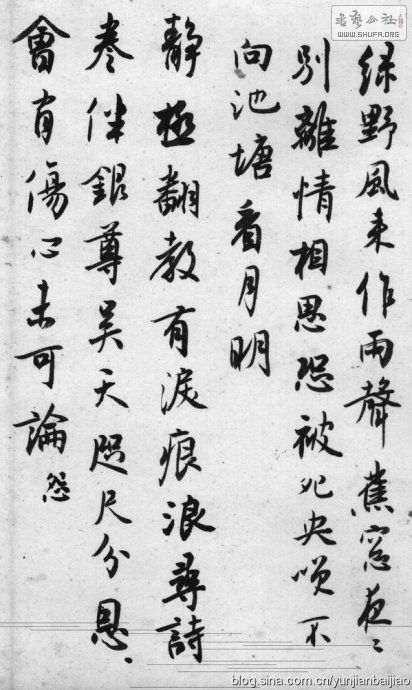 書藝公社
WWW.SHUFA.ORG
綠野風来作雨聲蕉窓夜〻
別離情相思恐被夗央咲不
向池塘看月明
靜極翻教有淚痕浪尋詩
卷伴銀尊吴天咫尺分恩、
會有傷心未可論怨
blog.sina.com.cn/yunjianbaijiao